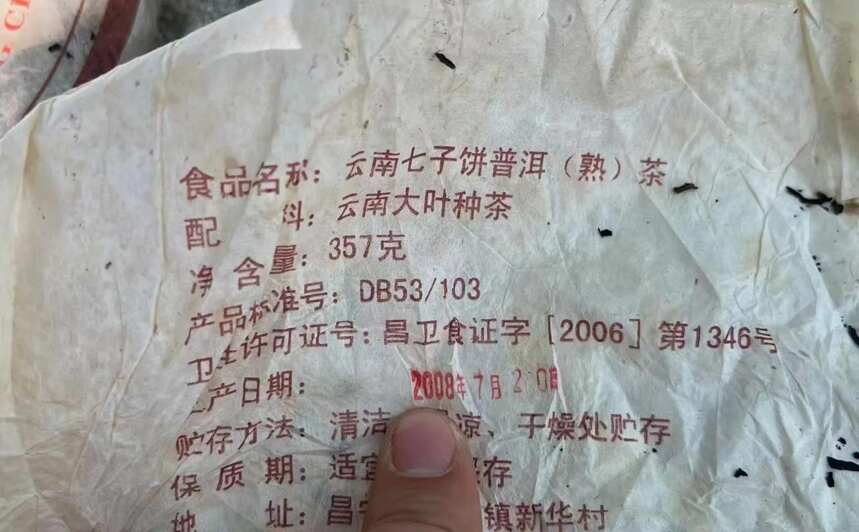 G CH
食品名称：云南七子饼普洱（熟）茶
配 料：云南大叶种茶
净 含 量：357克
产品标准号：DB53/103
卫生许可证号：昌卫食证字［2006］第1346号
生产日期： 2008年7月20日
贮存方法：清洁 凉、干燥处贮存
保 质 期：适宜 存
地 址：昌 镇新华村